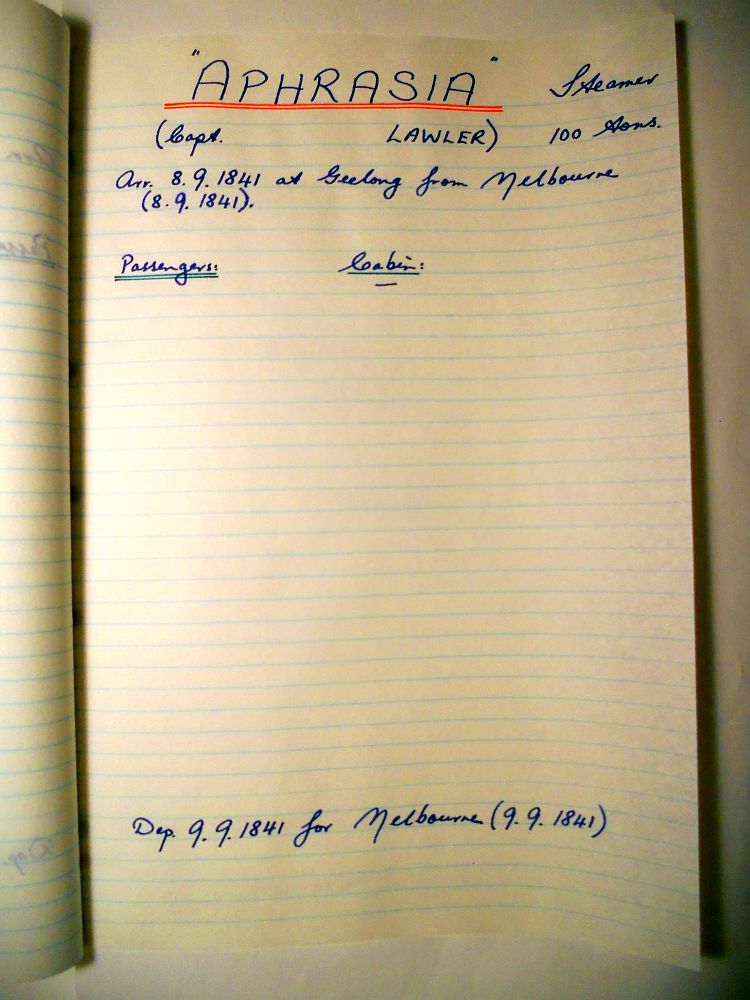 "APHRASIA" Steamer
(Capt. LAWLER) 100 tons.
Arr. 8.9.1841 at Geelong from Melbourne
(8.9.1841).
Passengers: Cabin:
—
Dep. 9.9.1841 for Melbourne (9.9.1841)